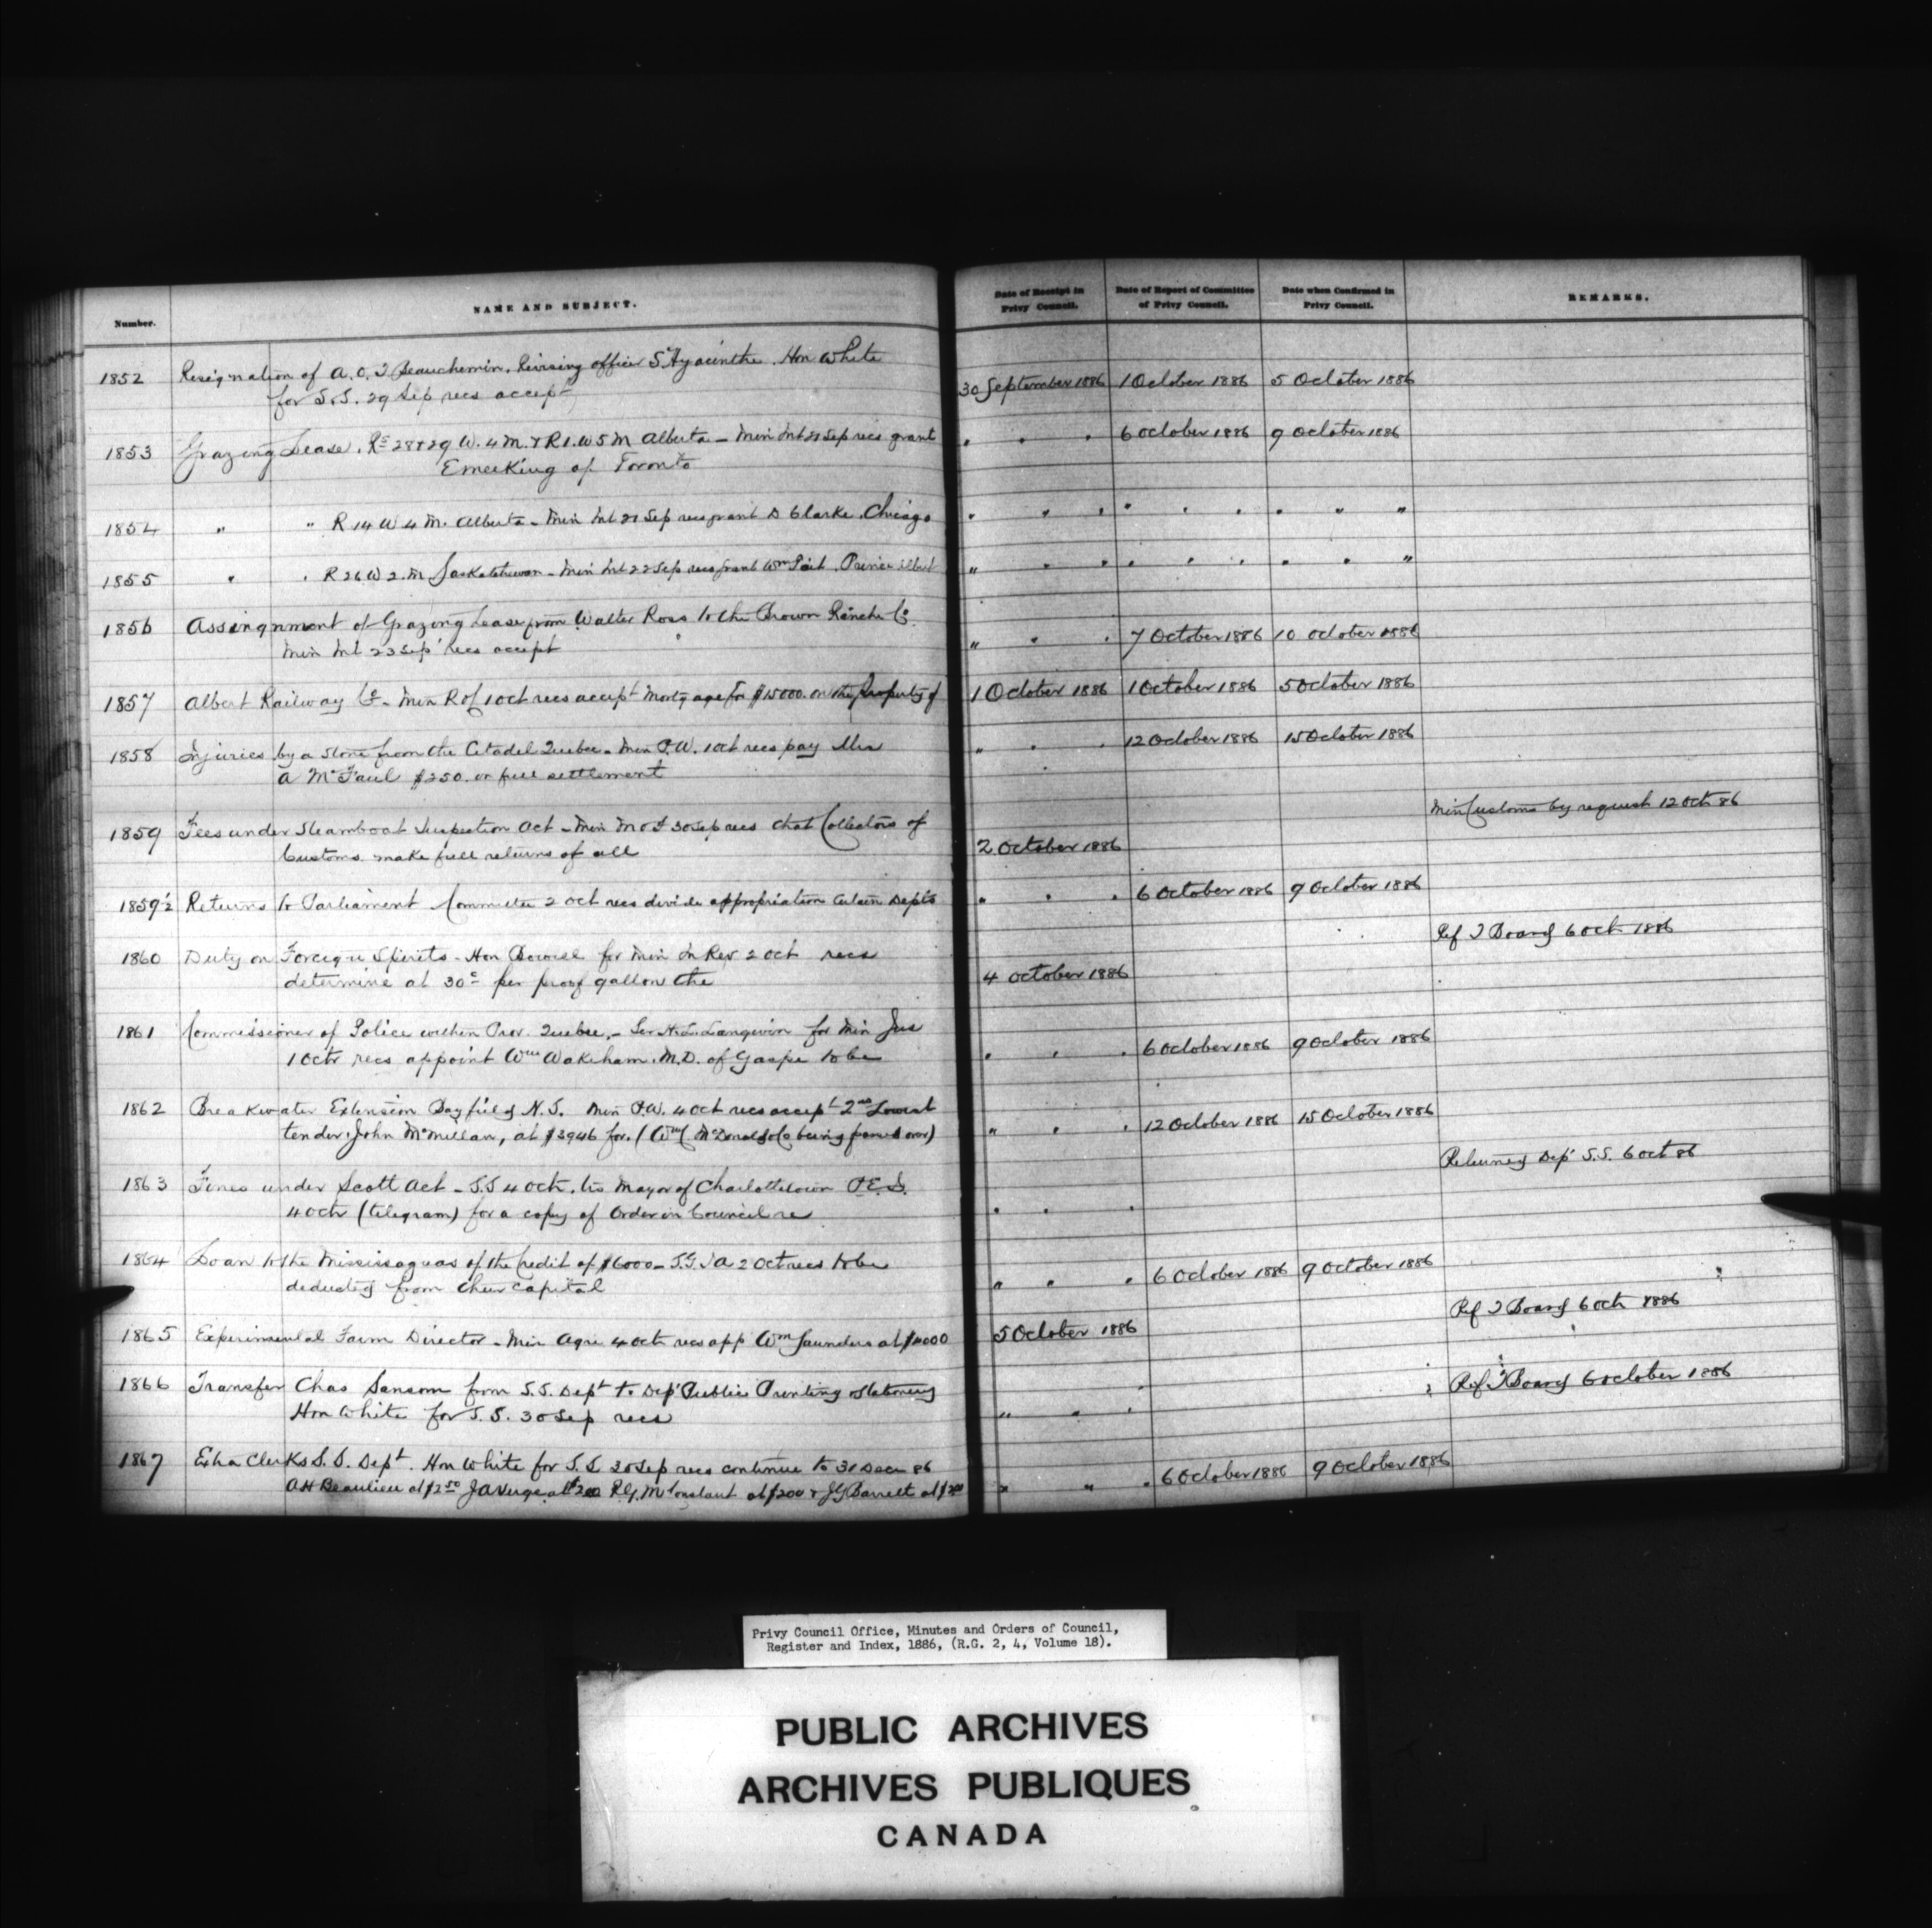 Number.
NAME AND SUBJECT.
Date of Receipt in Privy Council.
Date of Report of Committee of Privy Council.
Date when Confirmed in Privy Council.
REMARKS.
1852 Resignation of A. O. T. Beauchemin, Revising officer St Hyacinthe. Hon White
for S.S. 29 Sep recs accept 30 September 1886 1 October 1886 5 October 1886
1853 Grazing Lease. Rs 28 & 29 W. 4 M. & R 1. W 5 M Alberta - Min Int 21 Sep recs grant " " " 6 October 1886 9 October 1886
King of Toronto
1854 " " R 14 W 4 M. Alberta - Min Int 21 Sep recs grant D Clarke. Chicago " " " " " " " " "
1855 " " R 26 W 2. M. Saskatchewan - Min Int 22 Sep recs grant Wm Prince Albert " " " " " " " " "
1856 Assingnment of Grazing Lease from Walter Ross to the Brown Ranche Co.
Min Int 23 Sep recs accept " " " 7 October 1886 10 October 1886
1857 Albert Railway Co - Min R of 1 Oct recs accept Mortgage for $15000. on the Property of 1 October 1886 1 October 1886 5 October 1886
1858 Injuries by a Stone from the Citadel Quebec - Min P.W. 1 Oct recs pay Mrs " " " 12 October 1886 15 October 1886
A McFaul $250. in full settlement
Min Customs by request 12 Oct 86
1859 Fees under Steamboat Inspection Act - Min M & F 30 Sep recs that Collectors of
Customs make full returns of all 2 October 1886
1859½ Returns to Parliament Committee 2 Oct recs divide appropriation certain Depts " " " 6 October 1886 9 October 1886
Ref T Board 6 Oct 1886
1860 Duty on Foreign Spirits - Hon Bowell for Min In Rev 2 Oct recs
determine at 30c per proof gallon the 4 October 1886
1861 Commissioner of Police within Prov. Quebec. - Sir H. L. Langevin for Min Jus
1 Octr recs appoint Wm Wakeham. M.D. of Gaspe to be " " " 6 October 1886 9 October 1886
1862 Breakwater Extension Bayfield N.S. Min P.W. 4 Oct recs accept 2nd Lowest
tender. John McMillan, at $3946 for. (Wm McDonald & Co being passed over) " " " 12 October 1886 15 October 1886
Returned Dept S.S. 6 Oct 86
1863 Fines under Scott Act - S.S 4 Oct. Mayor of Charlottetown P.E.I.
4 Octr (telegram) for a copy of Order in Council re " " "
1864 Loan to the Mississaguas of the Credit of $6000 - S.G.I.A 2 Oct recs to be
deducted from their Capital " " " 6 October 1886 9 October 1886
Ref T Board 6 Oct 1886
1865 Experimental Farm Director - Min Agri 4 Oct recs app Wm Saunders at $4000 5 October 1886
1866 Transfer Chas Sansom from S.S. Dept to Dept Public Printing & Stationery Ref T Board 6 October 1886
Hon White for S.S. 30 Sep recs " " "
1867 Extra Clerks S.S. Dept. Hon White for S.S. 30 Sep recs continue to 31 Decr 86
A H Beaulieu at $2.50 J A at $2.00 at $2.00 & J G Barrett at $2.00 " " " 6 October 1886 9 October 1886
Privy Council Office, Minutes and Orders of Council,
Register and Index, 1886, (R.G. 2, 4, Volume 18).
PUBLIC ARCHIVES
ARCHIVES PUBLIQUES
CANADA